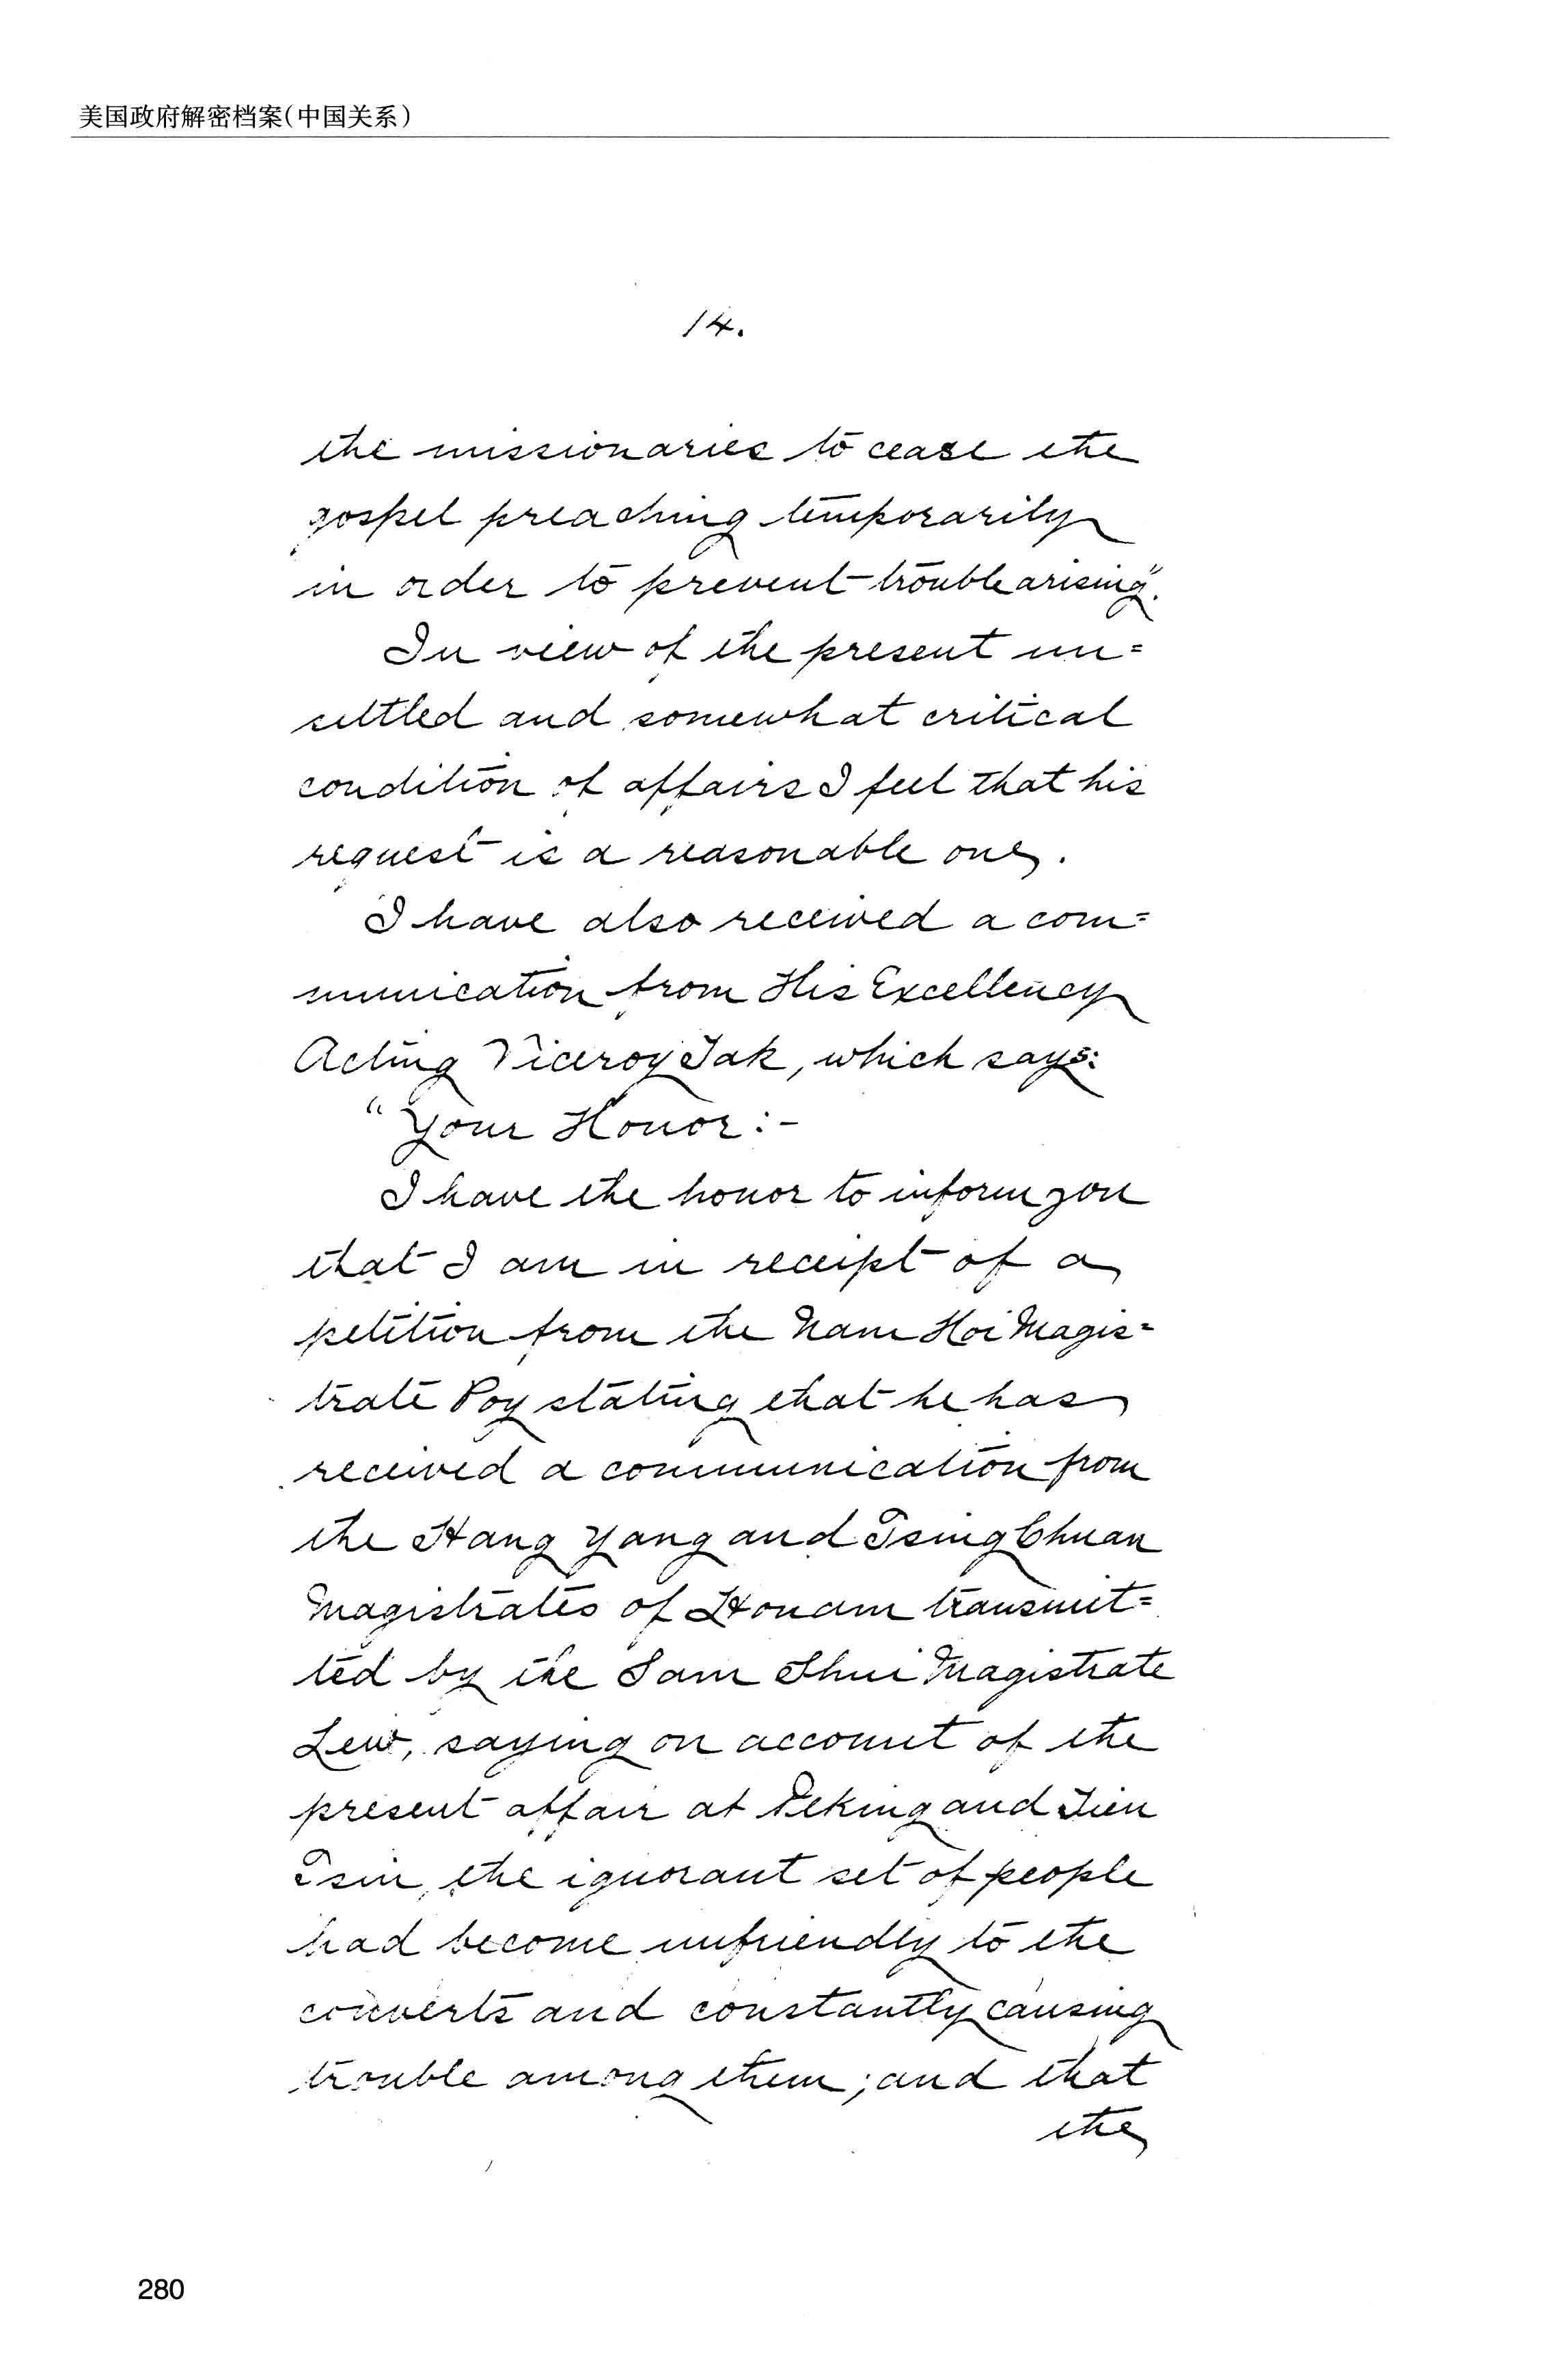 美国政府解密档案(中国关系)
14.
the missionaries to cease the
gospel preaching temporarily
in order to prevent trouble arising".
In view of the present un=
settled and somewhat critical
condition of affairs I feel that his
request is a reasonable one.
I have also received a com=
munication from His Excellency
Acting Viceroy Tak, which says:
"Your Honor:-
I have the honor to inform you
that I am in receipt of a
petition from the Nam Hoi Magis=
trate Poy stating that he has
received a communication from
the Hang Yang and Tsing Chuan
Magistrates of Honam transmit=
ted by the Sam Shui Magistrate
Lew, saying on account of the
present affair at Peking and Tien
Tsin, the ignorant set of people
had become unfriendly to the
converts and constantly causing
trouble among them; and that
the
280